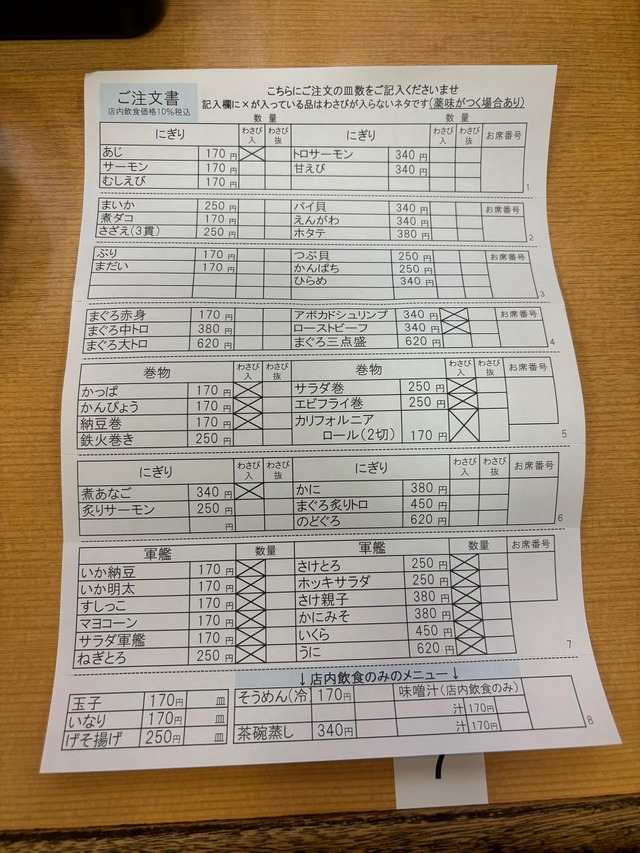 ご注文書
店内飲食価格10%税込
こちらにご注文の皿数をご記入くださいませ
記入欄に×が入っている品はわさびが入らないネタです(薬味がつく場合あり)
数 量 数 量
にぎり わさび入 わさび抜 にぎり わさび入 わさび抜 お席番号
あじ 170円 トロサーモン 340円
サーモン 170円 甘えび 340円
むしえび 170円
1
まいか 250円 バイ貝 340円 お席番号
煮ダコ 170円 えんがわ 340円
さざえ(3貫) 250円 ホタテ 380円
2
ぶり 170円 つぶ貝 250円
まだい 170円 かんぱち 250円
ひらめ 340円
3
まぐろ赤身 170円 アボカドシュリンプ 340円 お席番号
まぐろ中トロ 380円 ローストビーフ 340円
まぐろ大トロ 620円 まぐろ三点盛 620円
4
巻物 わさび入 わさび抜 巻物 わさび入 わさび抜 お席番号
かっぱ 170円 サラダ巻 250円
かんぴょう 170円 エビフライ巻 250円
納豆巻 170円 カリフォルニア
鉄火巻き 250円 ロール(2切) 170円
5
にぎり わさび入 わさび抜 にぎり わさび入 わさび抜 お席番号
煮あなご 340円 かに 380円
炙りサーモン 250円 まぐろ炙りトロ 450円
円 のどぐろ 620円
6
軍艦 数量 軍艦 数量 お席番号
いか納豆 170円 さけとろ 250円
いか明太 170円 ホッキサラダ 250円
すしっこ 170円 さけ親子 380円
マヨコーン 170円 かにみそ 380円
サラダ軍艦 170円 いくら 450円
ねぎとろ 250円 うに 620円
7
↓店内飲食のみのメニュー↓
玉子 170円 皿 そうめん(冷 170円 味噌汁(店内飲食のみ)
いなり 170円 皿 汁 170円
げそ揚げ 250円 皿 茶碗蒸し 340円 汁 170円
8